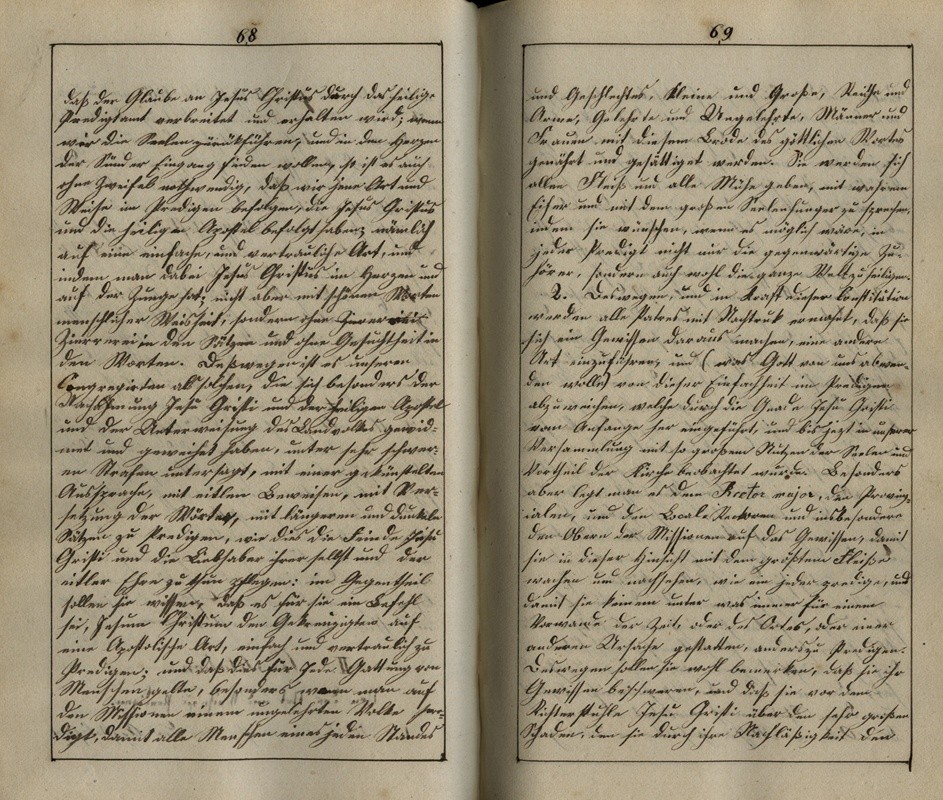 68
daß der Glaube an Jesus Christus durch das heilige
Predigtamt verbreitet und erhalten wird; wenn
wir die Seelen zurückführen, und in den Herzen
der Sünder Eingang finden wollen, so ist es auch
ohne Zweifel nothwendig, daß wir jene Art und
Weise im Predigen befolgen, die Jesus Christus
und die heiligen Apostel befolgt haben; nämlich
auf eine einfache, und vertrauliche Art, und
indem man dabei Jesus Christus im Herzen und
auf der Zunge hat; nicht aber mit schönen Worten
menschlicher Weisheit, sondern ohne
Ziererei in den Sätzen und ohne Gesuchtheit in
den Worten. Deßwegen ist es unseren
Congregirten als solchen, die sich besonders der
Nachahmung Jesu Christi und der heiligen Apostel
und der Unterweisung des Landvolkes gewid-
met und geweihet haben, unter sehr schwer-
en Strafen untersagt, mit einer gekünstelten
Aussprache, mit eitlen Beweisen, mit Ver-
setzung der Wörter, mit längeren und dunkeln
Sätzen zu Predigen, wie dies die Feinde Jesu
Christi und die Liebhaber ihrer selbst und der
eitler Ehre zu thun pflegen: im Gegentheil
sollen sie wissen, daß es für sie ein Befehl
sei, Jesum Christum den Gekreuzigten auf
eine Apostolische Art, einfach und vertraulich zu
Predigen; und daß dies für Jede Gattung von
Menschen gelte, besonders wenn man auf
den Missionen einem ungelehrten Volke pre-
digt, damit alle Menschen eines jeden Standes
69
und Geschlechtes, Kleine und Große, Reiche und
Arme, Gelehrte und Ungelehrte, Männer und
Frauen mit diesem Brode des göttlichen Wortes
genährt und gesättiget werden. Sie werden sich
allen Fleiß und alle Mühe geben, mit wahrem
Eifer und mit dem großen Seelenhunger zu sprechen,
indem sie wünschen, wenn es möglich wäre, in
jeder Predigt nicht nur die gegenwärtige Zu-
hörer, sondern auch wohl die ganze Welt zu heiligen.
2. Deswegen, und in Kraft dieser Constitution
werden alle Patres mit Nachtruk ermahnt, daß sie
sich ein Gewissen daraus machen, eine andere
Art einzuführen, und (was Gott von uns abwen-
den wolle) von dieser Einfachheit im Predigen
abzuweichen, welche durch die Gnade Jesu Christi
vom Anfange her eingeführt, und bis jezt in unserer
Versammlung mit so großem Nutzen der Seelen und
Vortheil der Kirche beobachtet wurde. Besonders
aber legt man es dem Rector major, den Provinz-
ialen, und den Locale Rectoren und insbesondere
den Obern der Missionen auf das Gewissen, damit
sie in dieser Hinsicht mit dem größten Fleiße
wachen und nachsehen, wie ein jeder predige, und
damit sie keinem unter was immer für einem
Vorwande der Zeit, oder des Ortes, oder einer
anderen Ursache gestatten, anders zu Predigen.
Deswegen sollen sie wohl bemerken, daß sie ihr
Gewissen beschweren, und daß sie vor dem
Richterstuhle Jesu Christi über den sehr großen
Schaden, den sie durch ihre Nachläßigkeit den